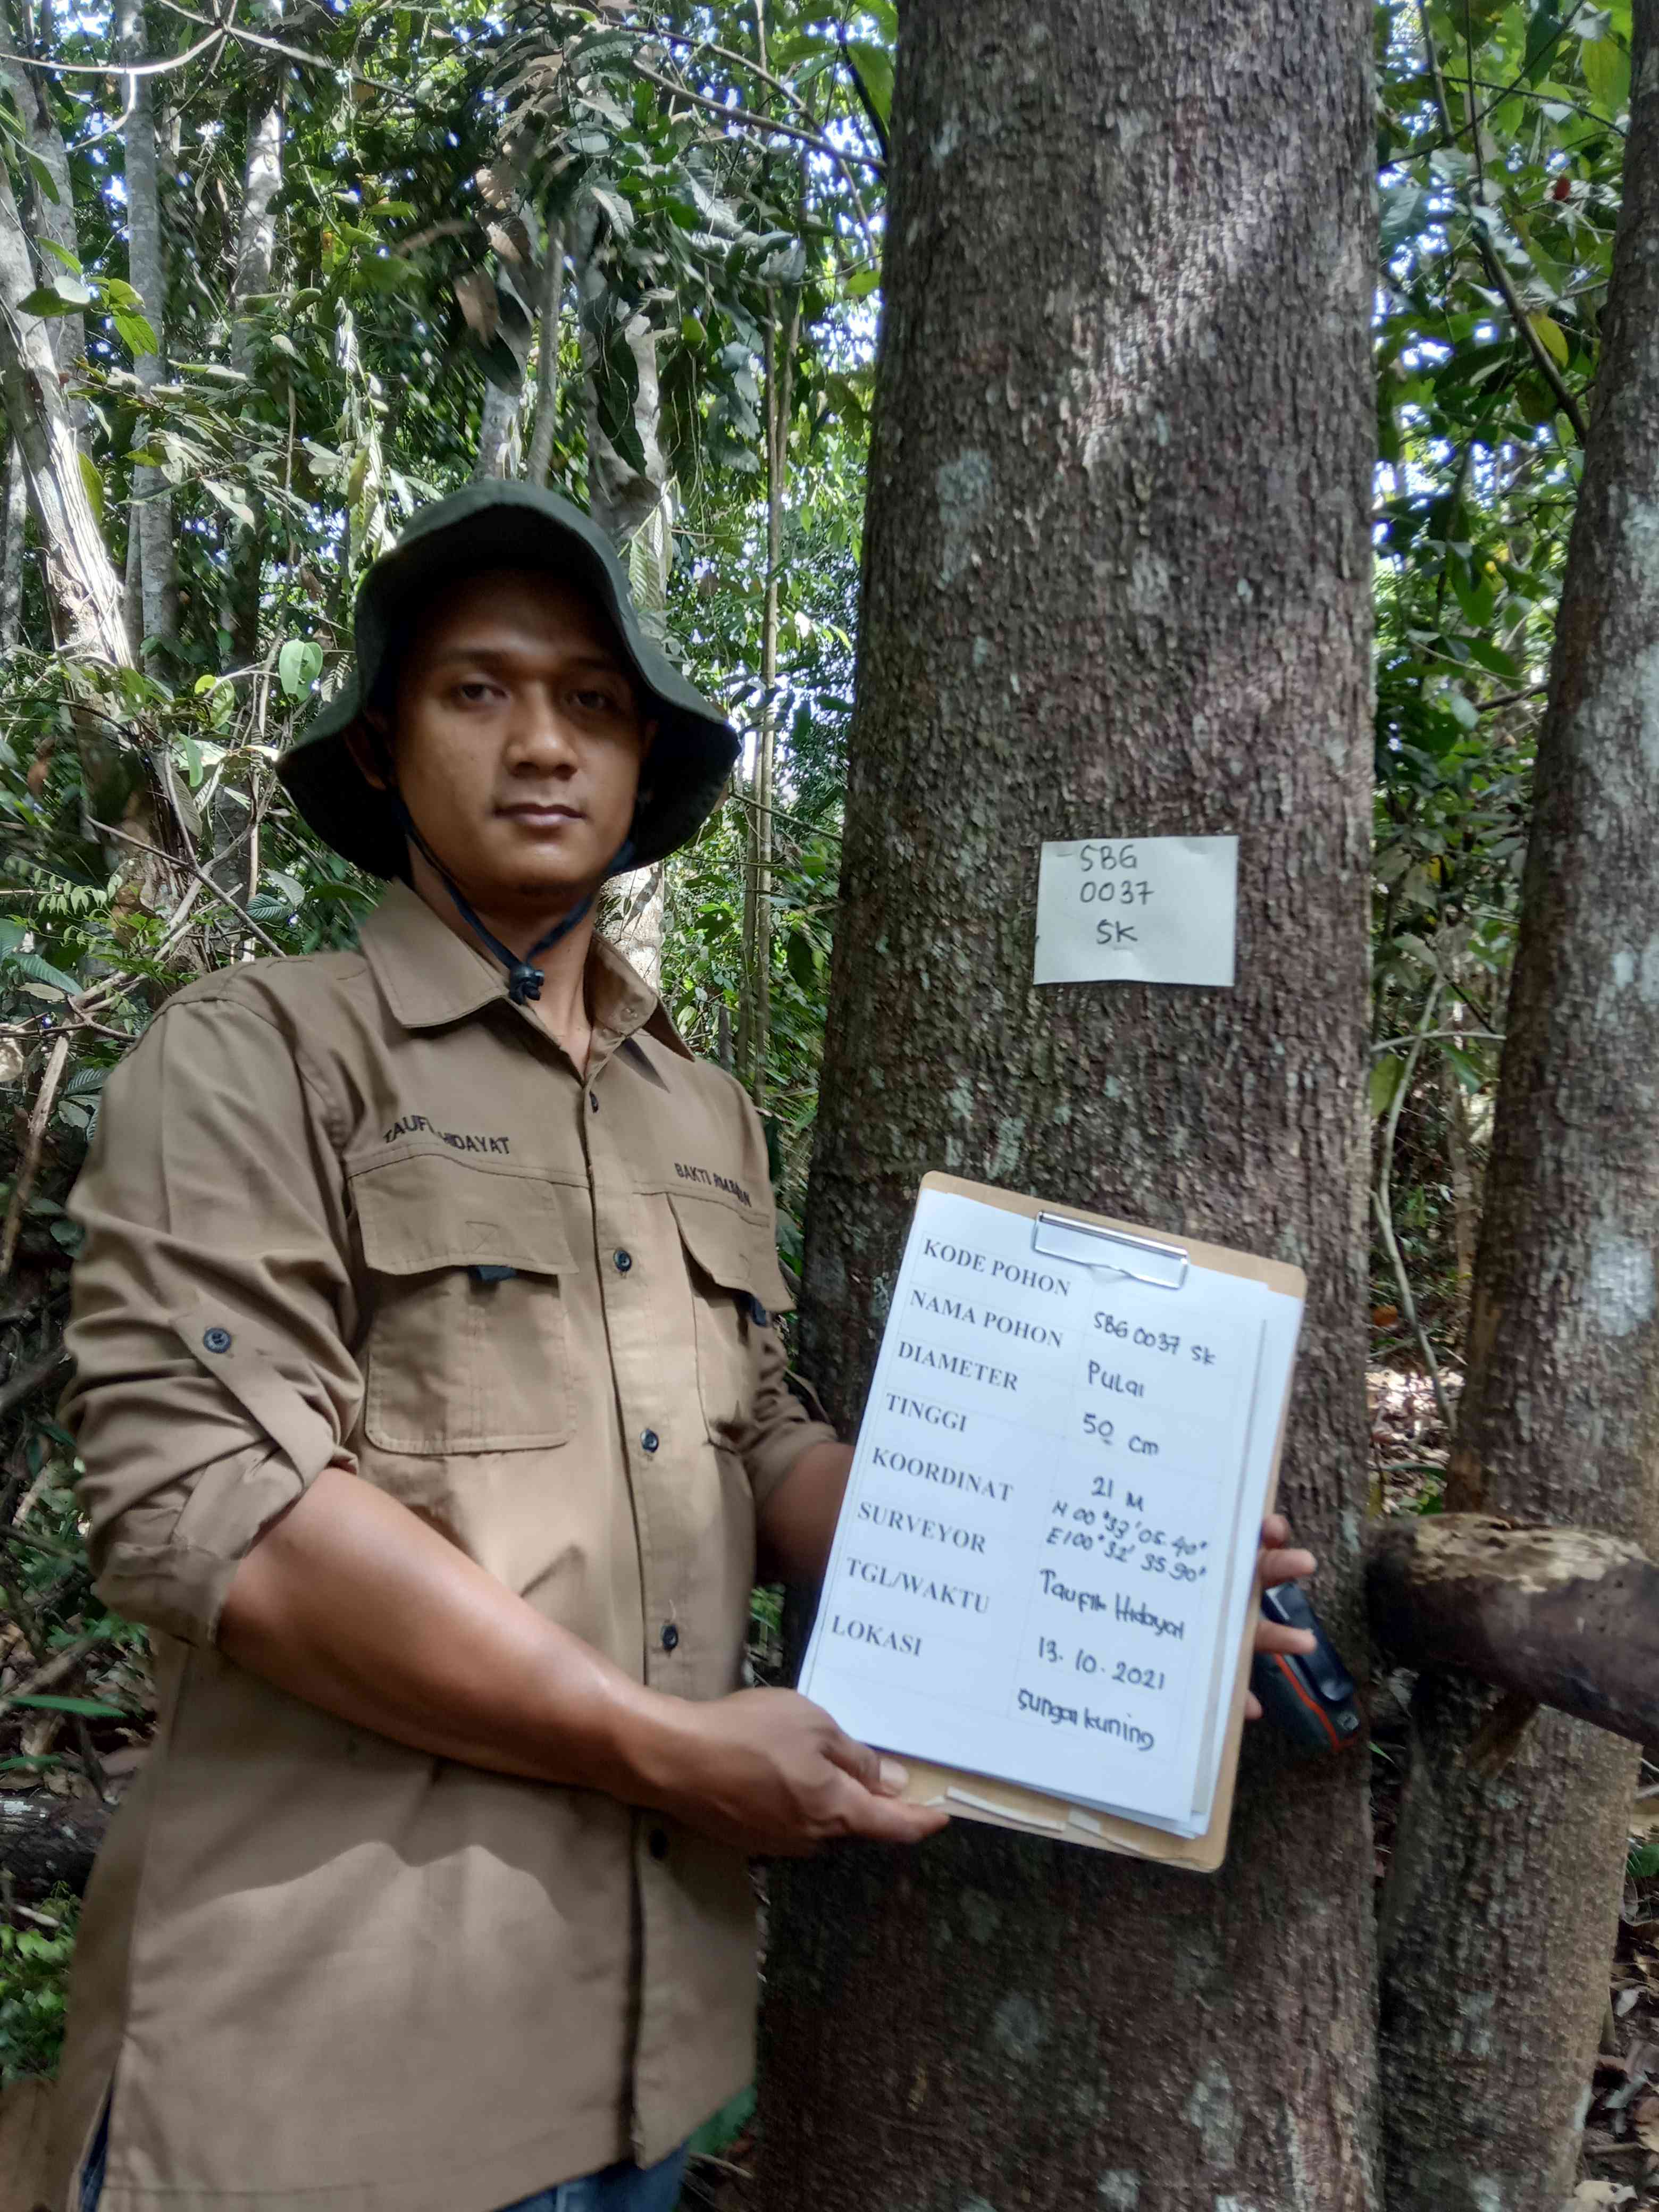 SBG
0037
SK
HIDAYAT
BAKTI
KODE POHON SBG 0037 SK
NAMA POHON Pulai
DIAMETER 50 cm
TINGGI 21 M
KOORDINAT N 00°33'05.40"
E100°32'35.90"
SURVEYOR Taufik Hidayat
TGL/WAKTU 13.10.2021
LOKASI Sungai kuning